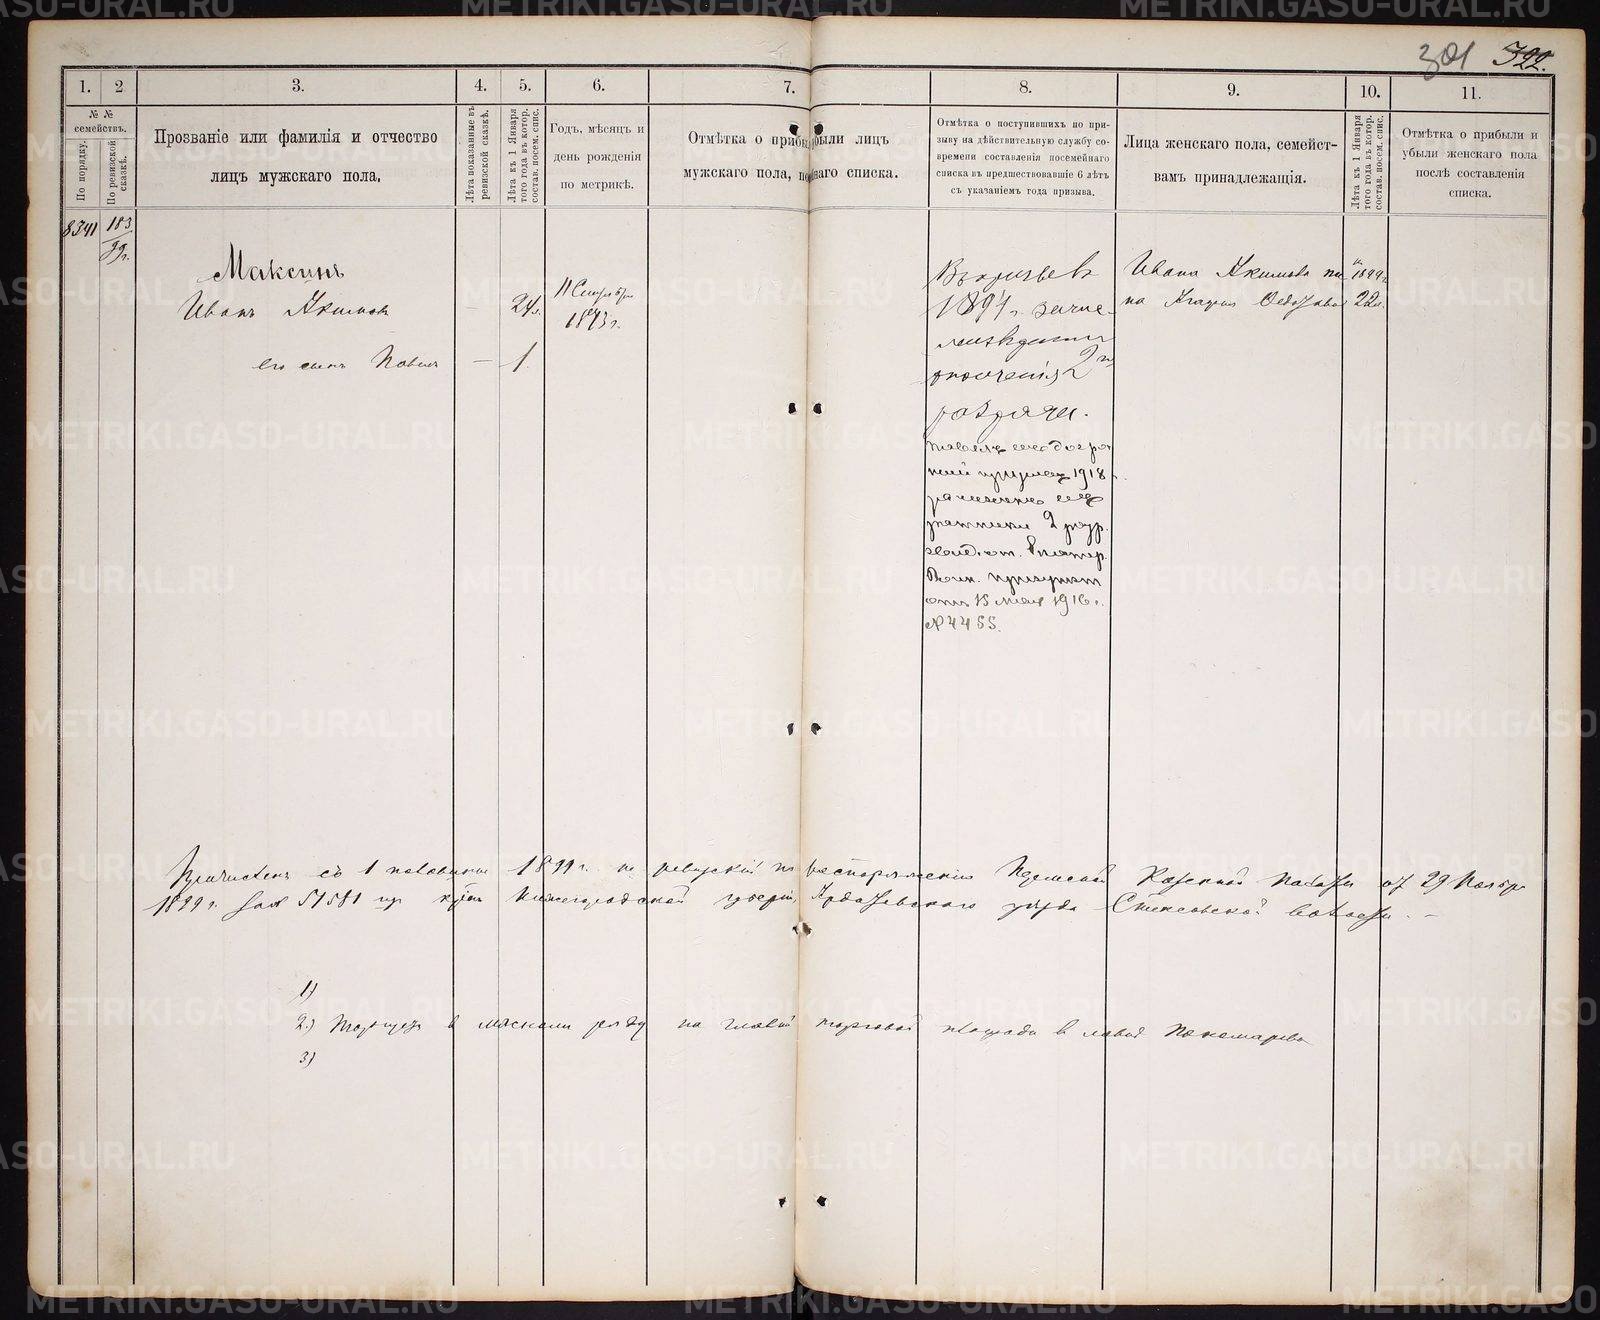 301 322.
1. 2 3. 4. 5. 6. 7. 8. 9. 10. 11.
№ №
семействъ.
По порядку.
По ревизской сказкѣ.
Прозваніе или фамилія и отчество
лицъ мужскаго пола.
Лѣта показанные въ
ревизской сказкѣ.
Лѣта къ 1 Января
того года въ котор.
состав. посем. спис.
Годъ, мѣсяцъ и
день рожденія
по метрикѣ.
Отмѣтка о прибыли лицъ
мужскаго пола,
списка.
Отмѣтка о поступившихъ по при-
зыву на дѣйствительную службу со-
времени составленія посемейнаго
списка въ предшествовавшіе 6 лѣтъ
съ указаніемъ года призыва.
Лица женскаго пола, семейст-
вамъ принадлежащія.
Лѣта къ 1 Января
того года въ котор.
состав. посем. спис.
Отмѣтка о прибыли и
убыли женскаго пола
послѣ составленія
списка.
8341 183
99г.
Максинъ
Иванъ Акимовъ 24г. 11 Сентября
1873 г.
его сынъ Павелъ — 1
Въ призывъ
1894 г. зачис-
ленъ въ ратники
ополченія 2го
разряда.
Павелъ
призыва 1918 г.
ратники 2 разр.
Воин. присутст
отъ 15 мая 1916 г.
№ 4455.
Ивана Акимова же-
на Федо
1899 г.
22 г.
Причисленъ съ 1 половины 1899 г. по распоряженію Пермской Казенной Палаты от 29 Ноября
1899 г. за № 51581 из Нижегородской губерніи, Ардатовскаго уѣзда волости. —
1)
2.) Торгует в мясном ряду на главной торговой площади в лавке Пономарева
3)